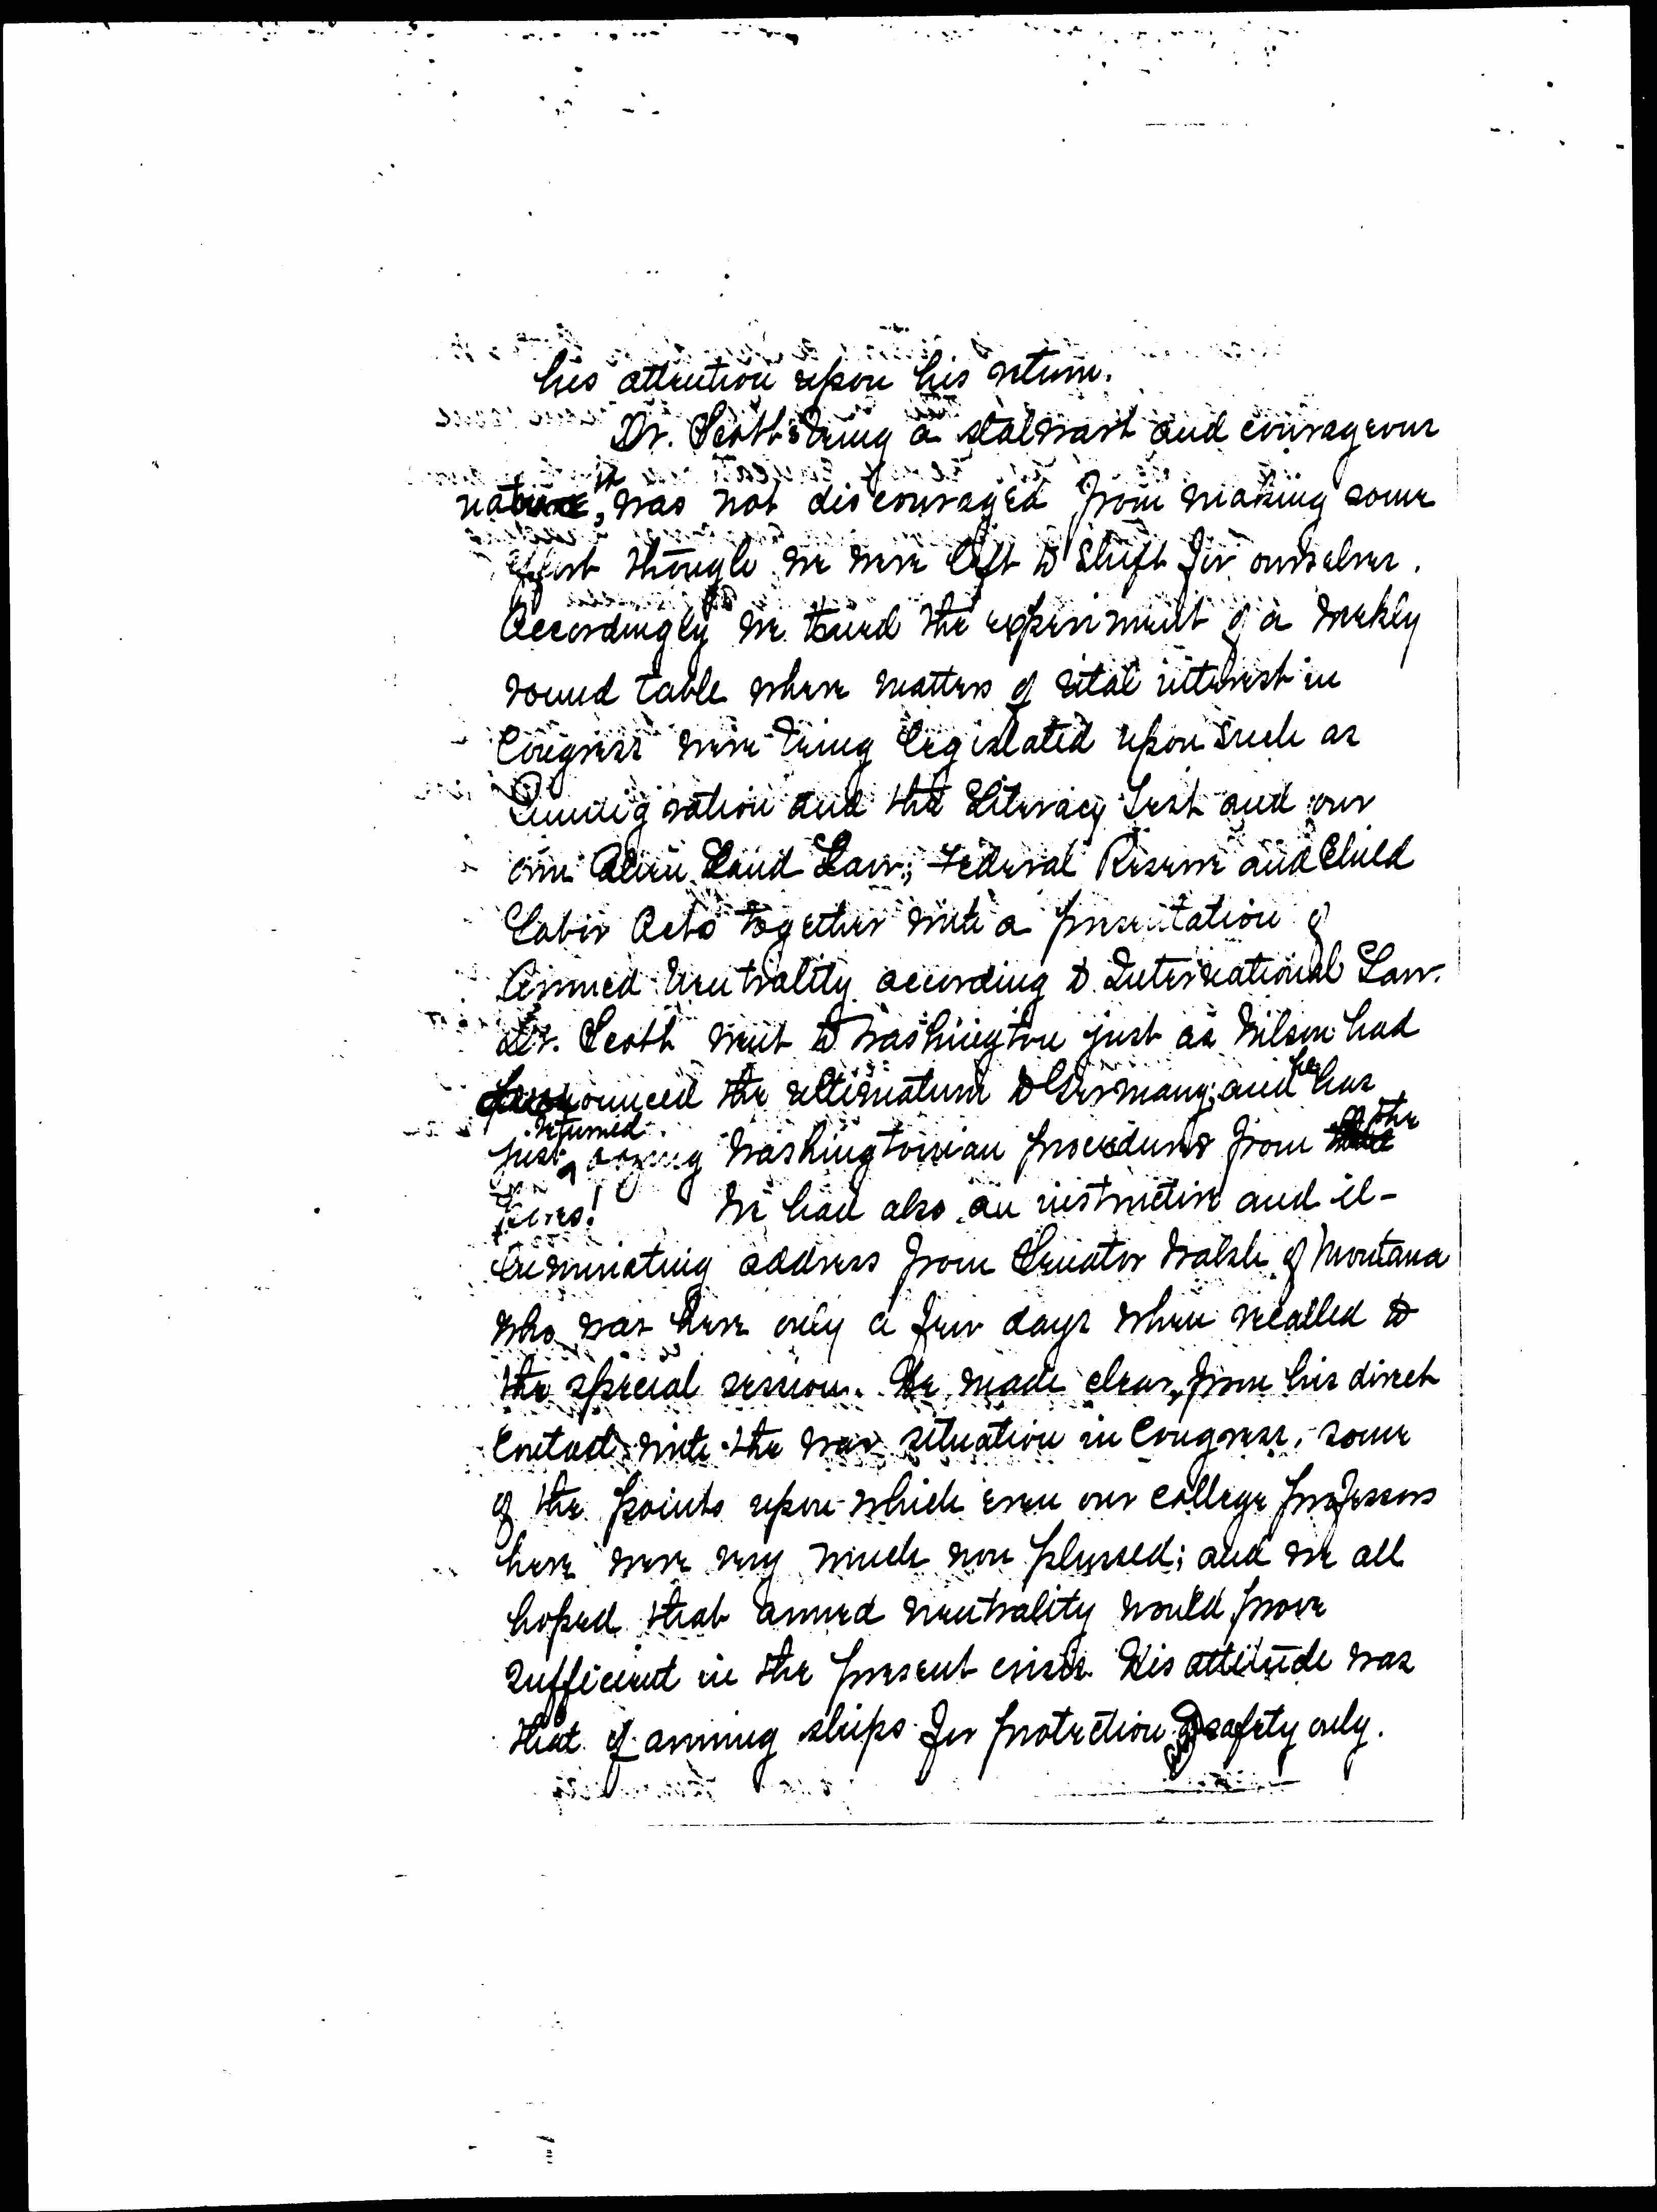 his attention upon his return.
Dr. Scott being a stalwart and courageous
nature, was not discouraged from making some
effort though we were left to shift for ourselves.
Accordingly we tried the experiment of a weekly
round table where matters of vital interest in
Congress were being legislated upon such as
Immigration and the Literacy Test and our
own Alien Land Law; Federal Reserve and Child
Labor Acts together with a presentation of
Armed Neutrality according to International Law.
Dr. Scott went to Washington just as Wilson had
pronounced the ultimatum to Germany; and he has
just returned Washingtonian procedure from the
We had also an instructive and il-
luminating address from Senator Walsh of Montana
who was here only a few days when recalled to
the special session. He made clear, from his direct
contact with the war situation in Congress, some
of the points upon which even our college professors
here were very much non plussed; and we all
hoped that armed neutrality would prove
sufficient in the present crisis. His attitude was
that of arming ships for protection and safety only.